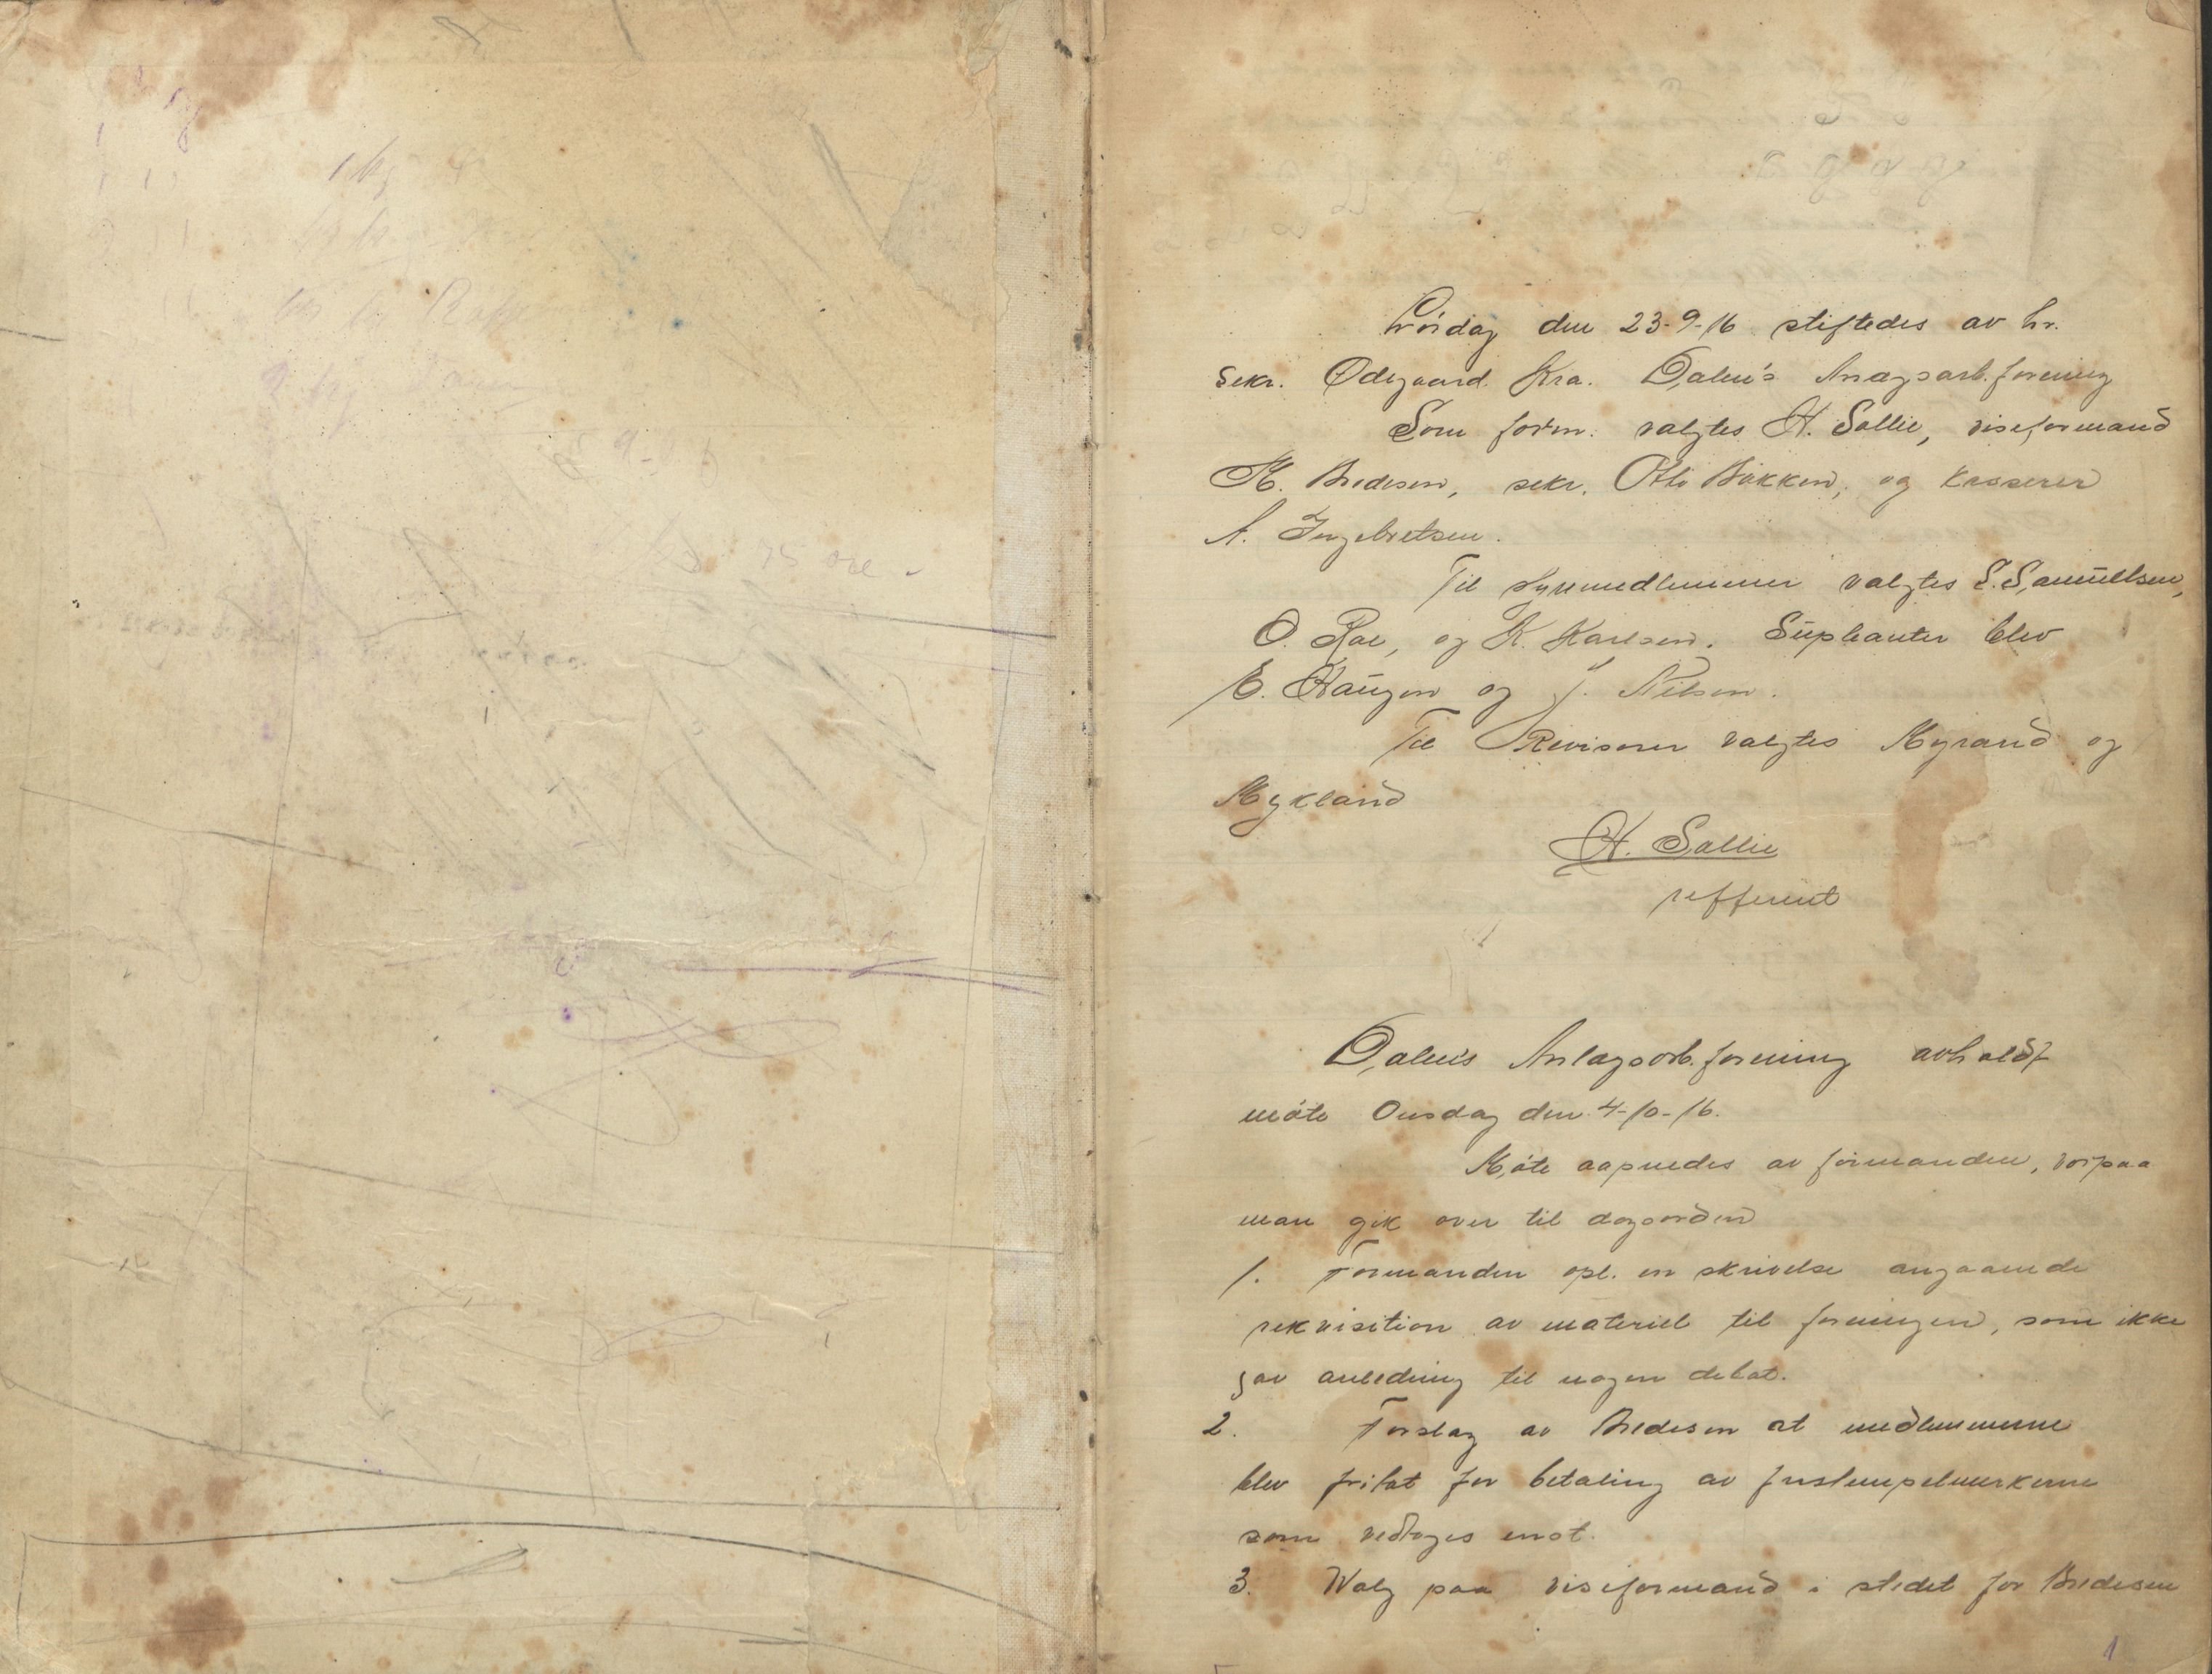 Lördag den 23-9-16 stiftedes av hr.
sekr. Ødegaard. Kra. Dalen's Anlagsarb.forening
Som form. valgtes H. Sollie, viseformand
M. Bredesen, sekr. Otto Bakken, og kasserer
A. Ingebretsen.
Til styremedlemmer valgtes S. Samuelsen,
O. Roe, og K. Karlsen. Supleanter blev
E. Haugen og J. Nilsen.
Til Revisorer valgtes Myrand og
Mykland
H. Sollie
refferent
Dalen's Anlagsarb.forening avholdt
möte Onsdag den 4-10-16.
Möte aapnedes av formanden, vorpaa
man gik over til dagsorden
1. Formanden opl. en skrivelse angaaende
rekvisition av materiel til foreningen, som ikke
gav anledning til nogen debat.
2. Forslag av Bredesen at medlemmerne
blev fritat for betaling av
som vedtoges enst.
3. Valg paa viseformand i stedet for Bredesen
1
75 øre